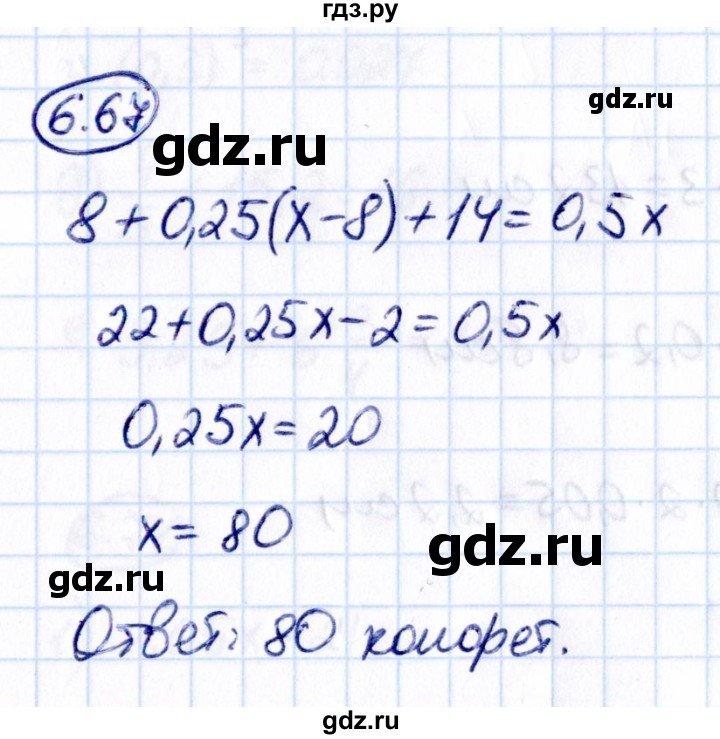 гдз.ру
gdz.ru
6.67
gdz.ru
8+0,25(x-8)+14=0,5x
22+0,25x-2=0,5x
0,25x=20
x=80
gdz.ru
gdz.ru
Ответ: 80 конфет.
gdz.ru